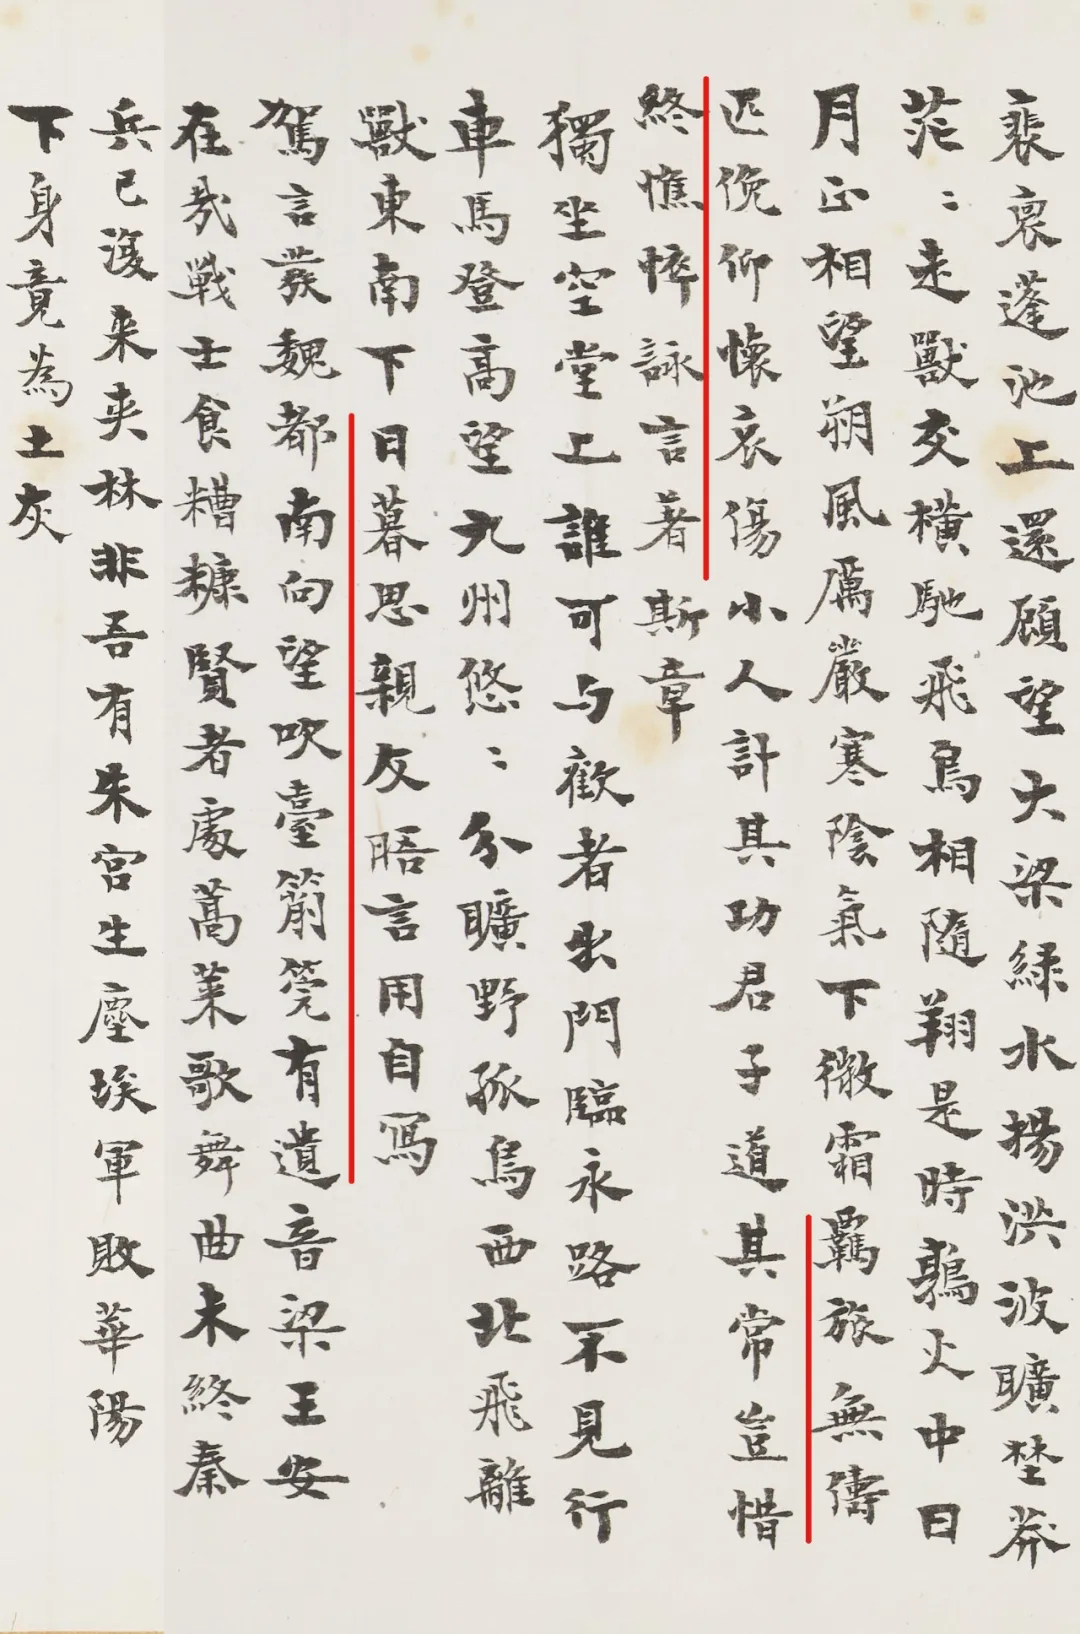 裴裒蓬池上還顧望大梁綠水揚洪波曠埜莽
茫⺀走獸交橫馳飛鳥相隨翔是時鶉火中日
月正相望朔風厲嚴寒陰氣下微霜羈旅無儔
匹俛仰懷哀傷小人計其功君子道其常豈惜
終憔悴詠言著斯章
獨坐空堂上誰可与歡者出門臨永路不見行
車馬登高望九州悠⺀分曠野孤鳥西北飛離
獸東南下日暮思親友晤言用自寫
駕言發魏都南向望吹臺簫筦有遺音梁王安
在哉戰士食糟糠賢者處蒿萊歌舞曲未終秦
兵已復来夾林非吾有朱宮生塵埃軍敗華陽
下身竟為土灰